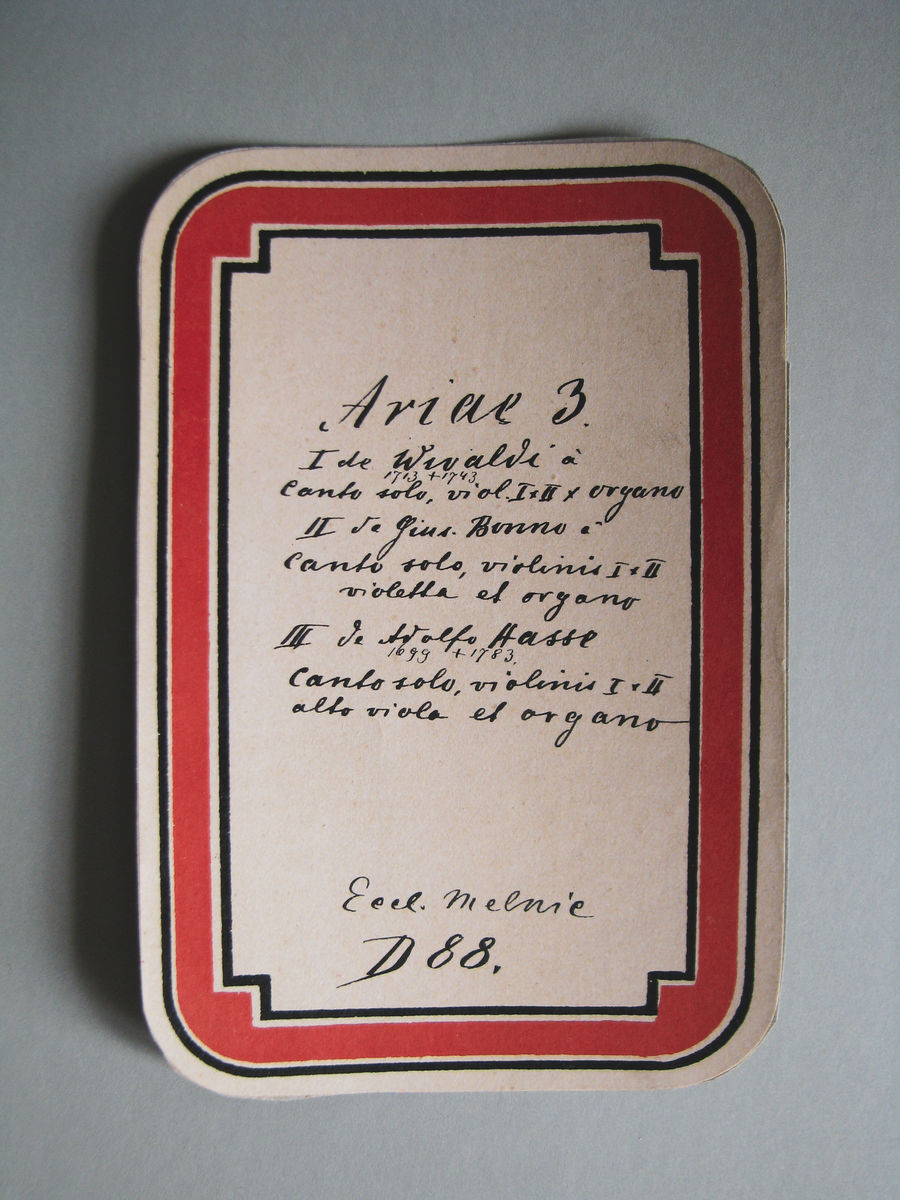 Ariae 3.
I de Wivaldi à
1713 +1743
Canto solo, viol. I+II + organo
II de Gius. Bonno à
Canto solo, violinis I+II
violetta et organo
III de Adolfo Hasse
1699 +1783.
Canto solo, violinis I+II
alto viola et organo
Eccl. Melnic
D 88.